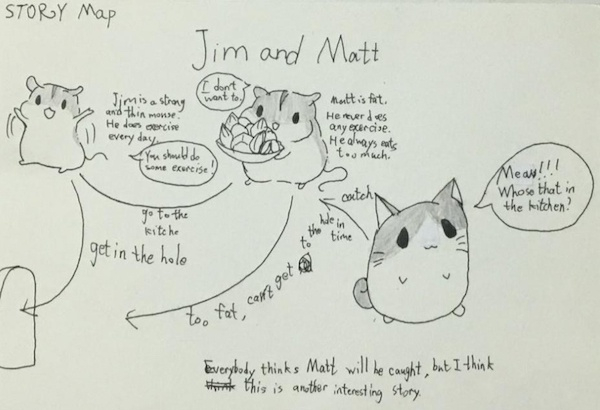 STORY Map
Jim and Matt
Jim is a strong
and thin mouse.
He does exercise
every day.
You should do
some exercise!
I don't
want to.
Matt is fat.
He never does
any exercise.
He always eats
too much.
Meaw!!!
Whose that in
the kitchen?
catch
go to the
kitche
get in the hole
too fat, can't get to the hole in time
Everybody thinks Matt will be caught, but I think
this is another interesting story.